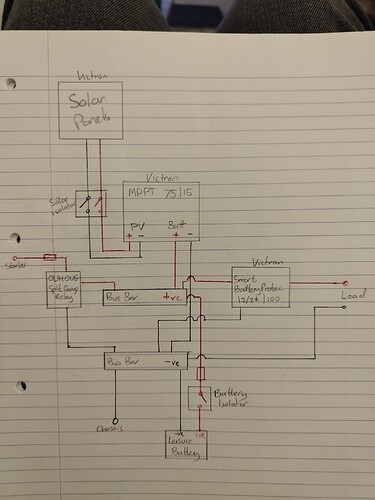 Victron
Solar
Panels
Solar
Isolator
Victron
MPPT 75/15
PV
Bat
+ -
+ -
Starter
Split Charge
Relay
Bus Bar +ve
Victron
Smart
Battery Protec
12/24/100
Load
Bus Bar -ve
Chassis
Battery
Isolator
-ve +ve
Leisure
Battery